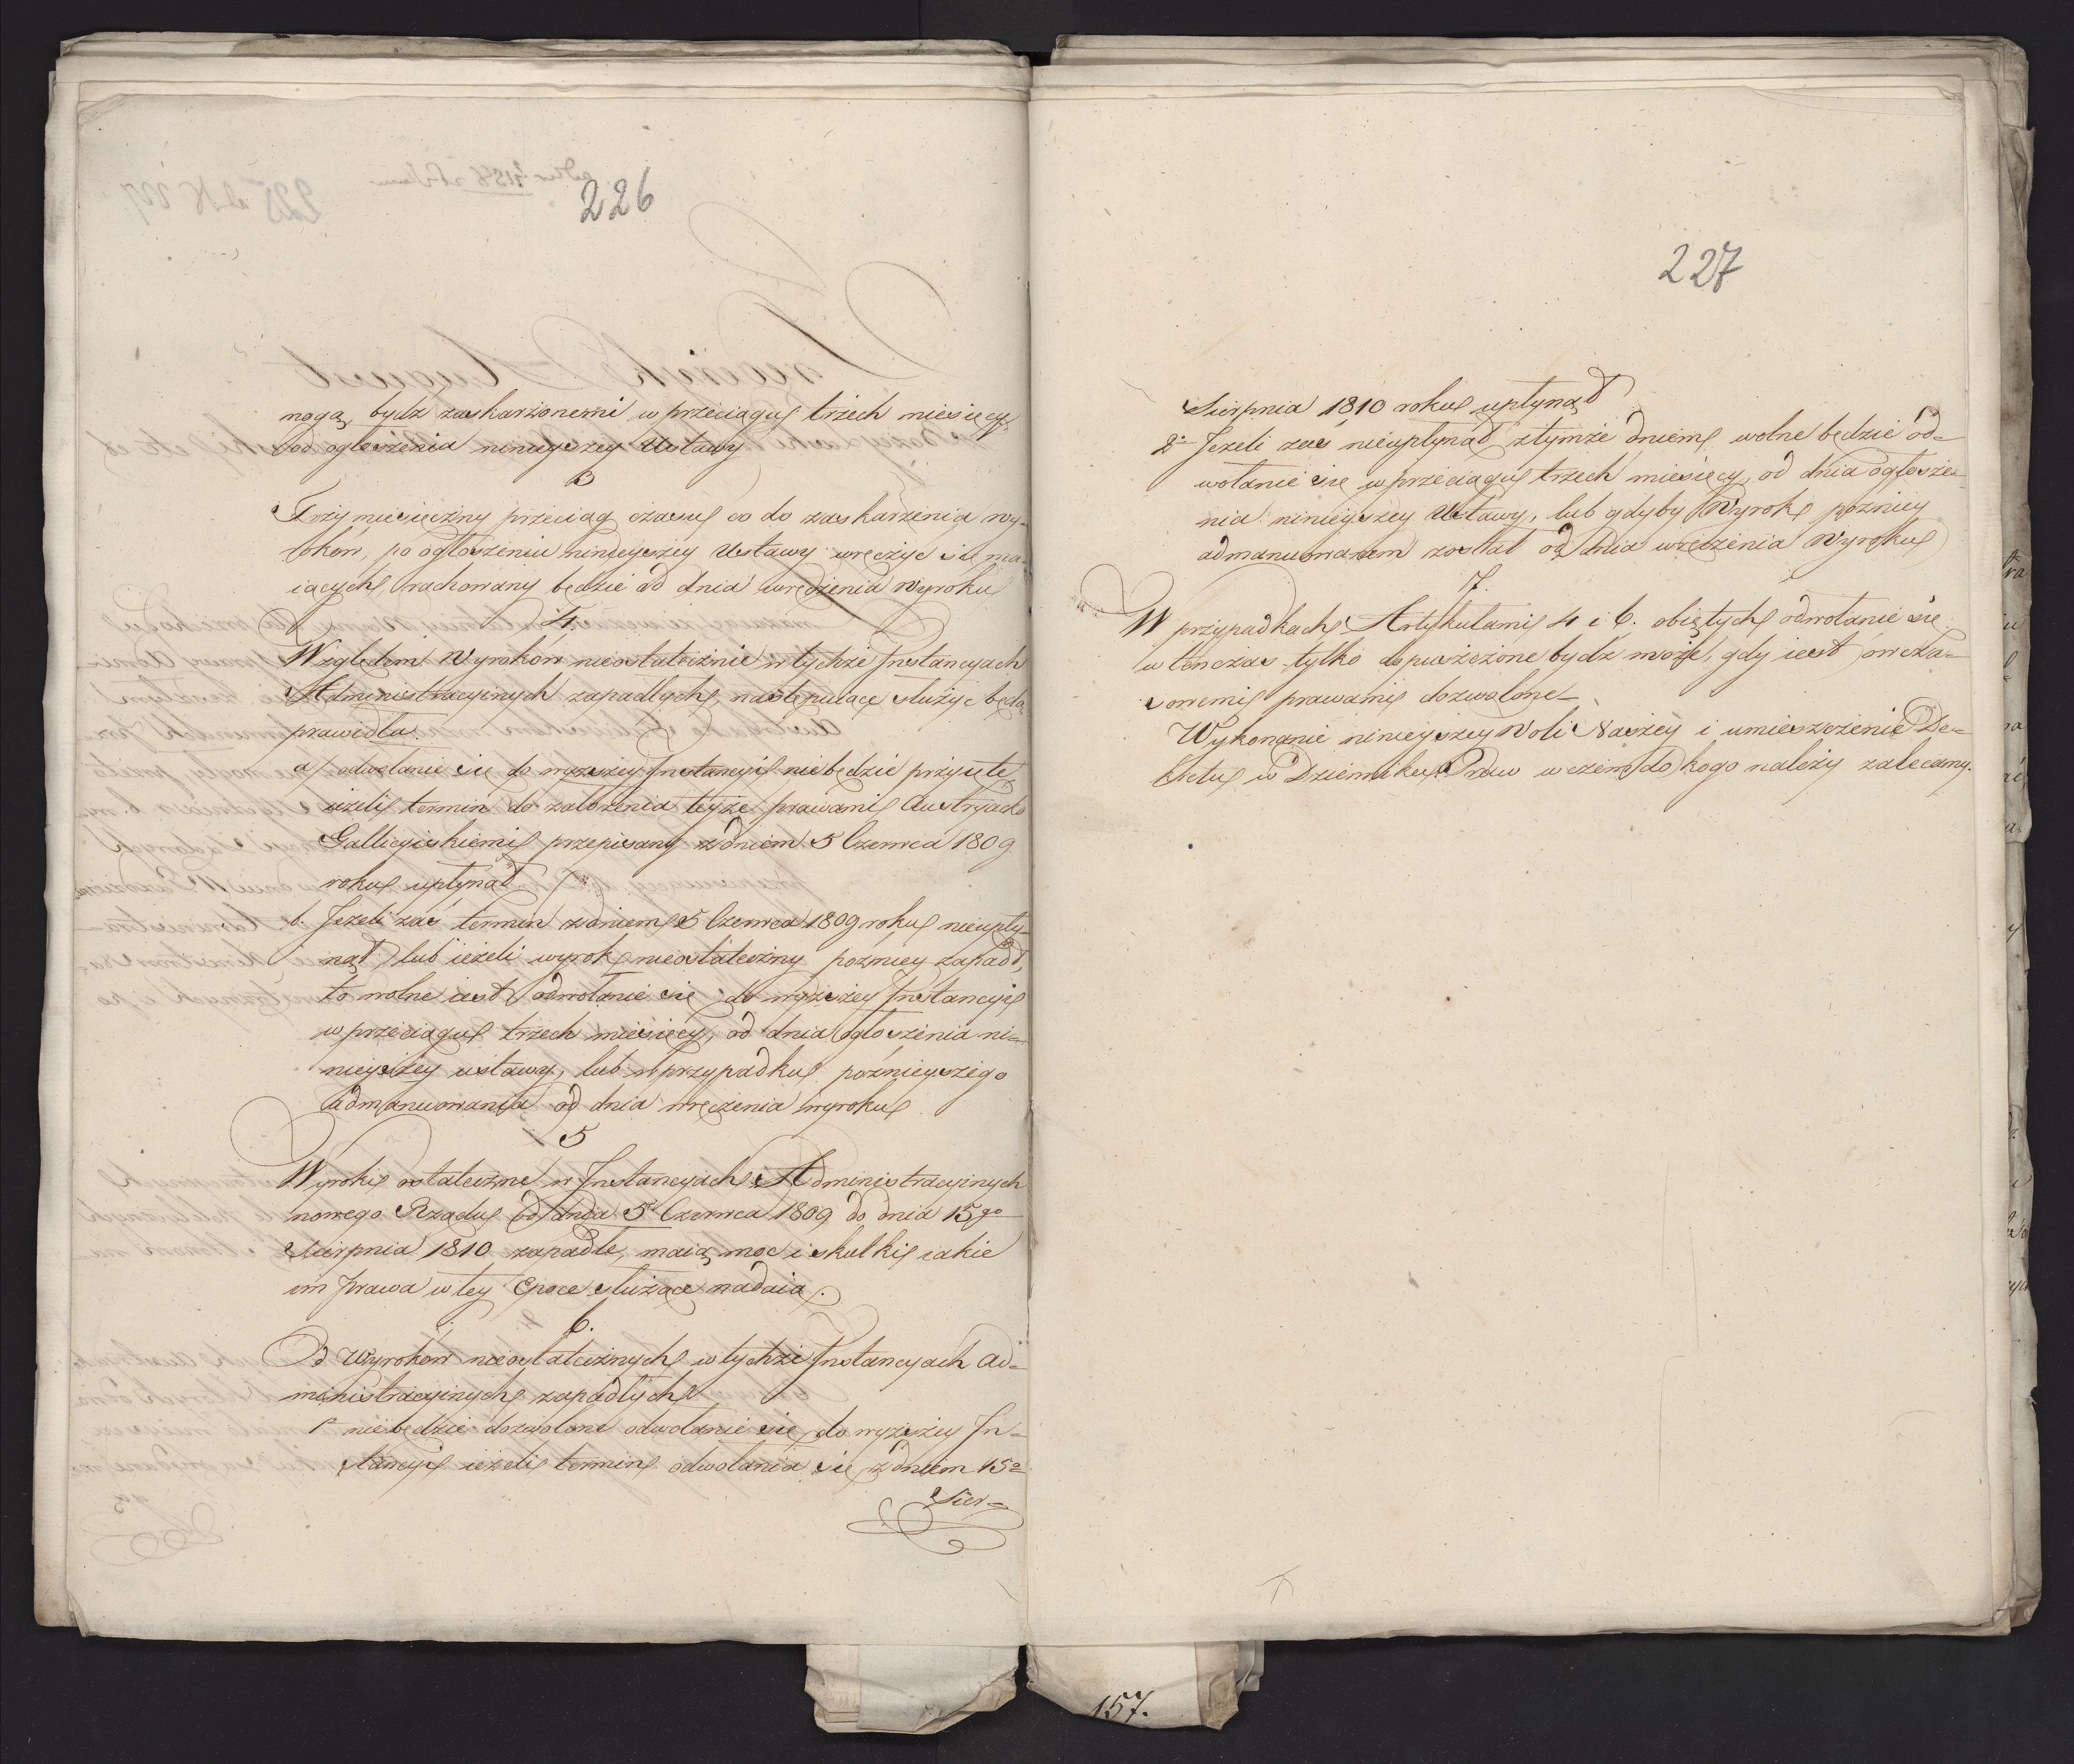 226
mogą bydź zaskarżonemi w przeciągu trzech miesięcy
od ogłoszenia ninieyszey Ustawy
3
Trzy miesięczny przeciąg czasu co do zaskarżenia wy-
roków, po ogłoszeniu ninieyszey Ustawy wręczyć się ma-
iących, rachowany będzie od dnia wręczenia Wyroku
4.
Względem Wyroków nieostatecznie w tychże Instancyach
Administracyinych zapadłych, następuiące służyć będą
prawidła.
a/ odwołanie się do wyższey Instancyi niebędzie przyięte
ieżeli termin do założenia teyże prawami Austryacko
Gallicyiskiemi przepisany z dniem 5 Czerwca 1809
roku upłynął.
b. Jeżeli zaś termin z dniem 5 Czerwca 1809 roku nieupły-
nął, lub ieżeli wyrok nieostateczny poźniey zapadł,
to wolne iest odwołanie się do wyższey Instancyi
w przeciągu trzech miesięcy, od dnia ogłoszenia ni-
nieyszey ustawy, lub w przypadku poźnieyszego
admanuowania od dnia wręczenia wyroku
5
Wyroki ostateczne w Instancyach Administracyinych
nowego Rządu od dnia 5 Czerwca 1809 do dnia 15go
Sierpnia 1810 zapadłe, maią moc i skutki iakie
im prawa w tey Epoce służące nadaią.
6.
Od Wyroków nieostatecznych w tychże Instancyach Ad-
ministracyinych zapadłych
1o niebędzie dozwolone odwołanie się do wyższey In-
stancyi ieżeli termin odwołania się z dniem 15o
Sier-
227
Sierpnia 1810 roku upłynął
2o Jeżeli zaś nieupłynął z tymże dniem, wolne będzie od-
wołanie się w przeciągu trzech miesięcy, od dnia ogłosze-
nia ninieyszey Ustawy, lub gdyby Wyrok poźniey
admanuowanem został od dnia wręczenia Wyroku
7.
W przypadkach Artykułami 4 i 6. obiętych odwołanie się
w tenczas tylko dopuszczone bydź może, gdy iest owcza-
sowemi prawami dozwolone
Wykonanie ninieyszey Woli Naszey i umieszczenie De-
kretu w Dzienniku Praw w czem do kogo należy zalecamy.
157.